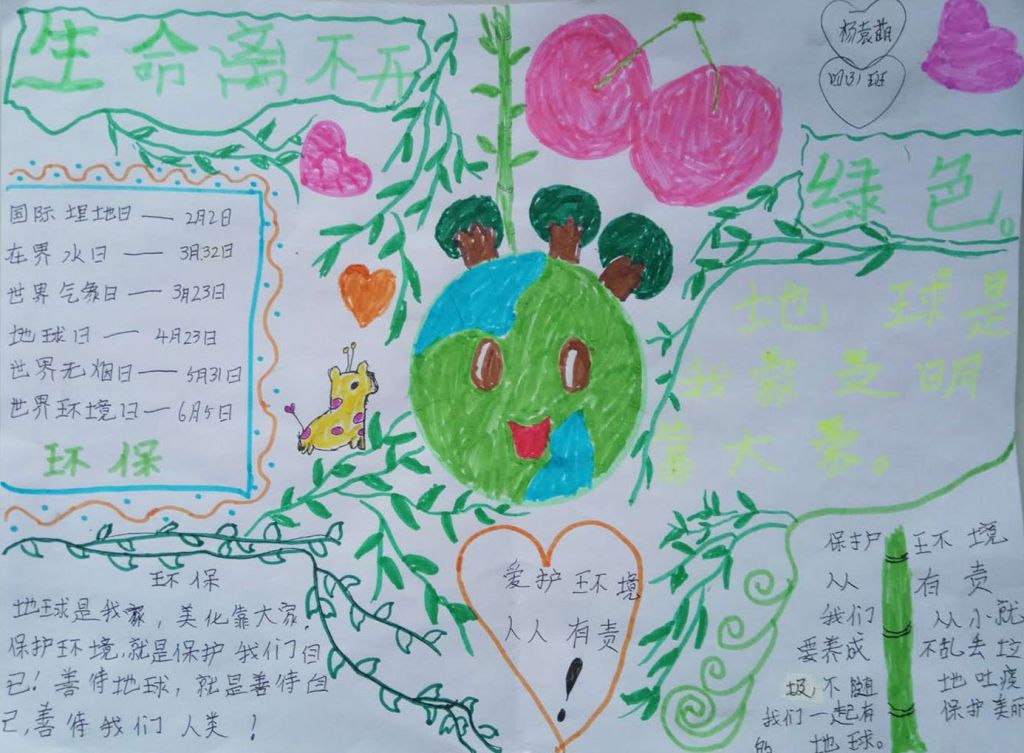 生命离不开
杨袁萌
四(3)班
绿色。
国际湿地日——2月2日
在界水日——3月32日
世界气象日——3月23日
地球日——4月23日
世界无烟日——5月31日
世界环境日——6月5日
环保
地球是
我家文明
靠大家。
环保
地球是我家，美化靠大家.
保护环境,就是保护我们自
己！善待地球，就是善待自
己,善待我们人类！
爱护环境
人人有责
！
保护环境
人人有责
我们从小就
要养成不乱丢垃
圾,不随地吐痰
我们一起有保护美丽
的地球。